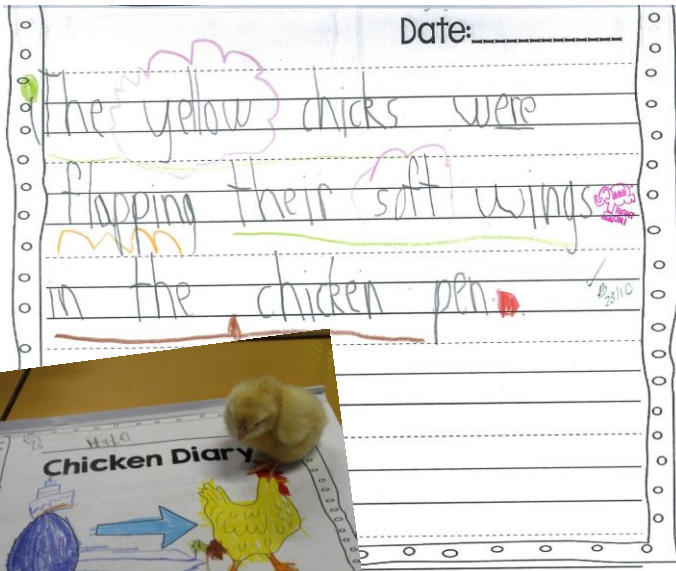 Date:
The yellow chicks were
flapping their soft wings
in the chicken pen.
23/10
Chicken Diary